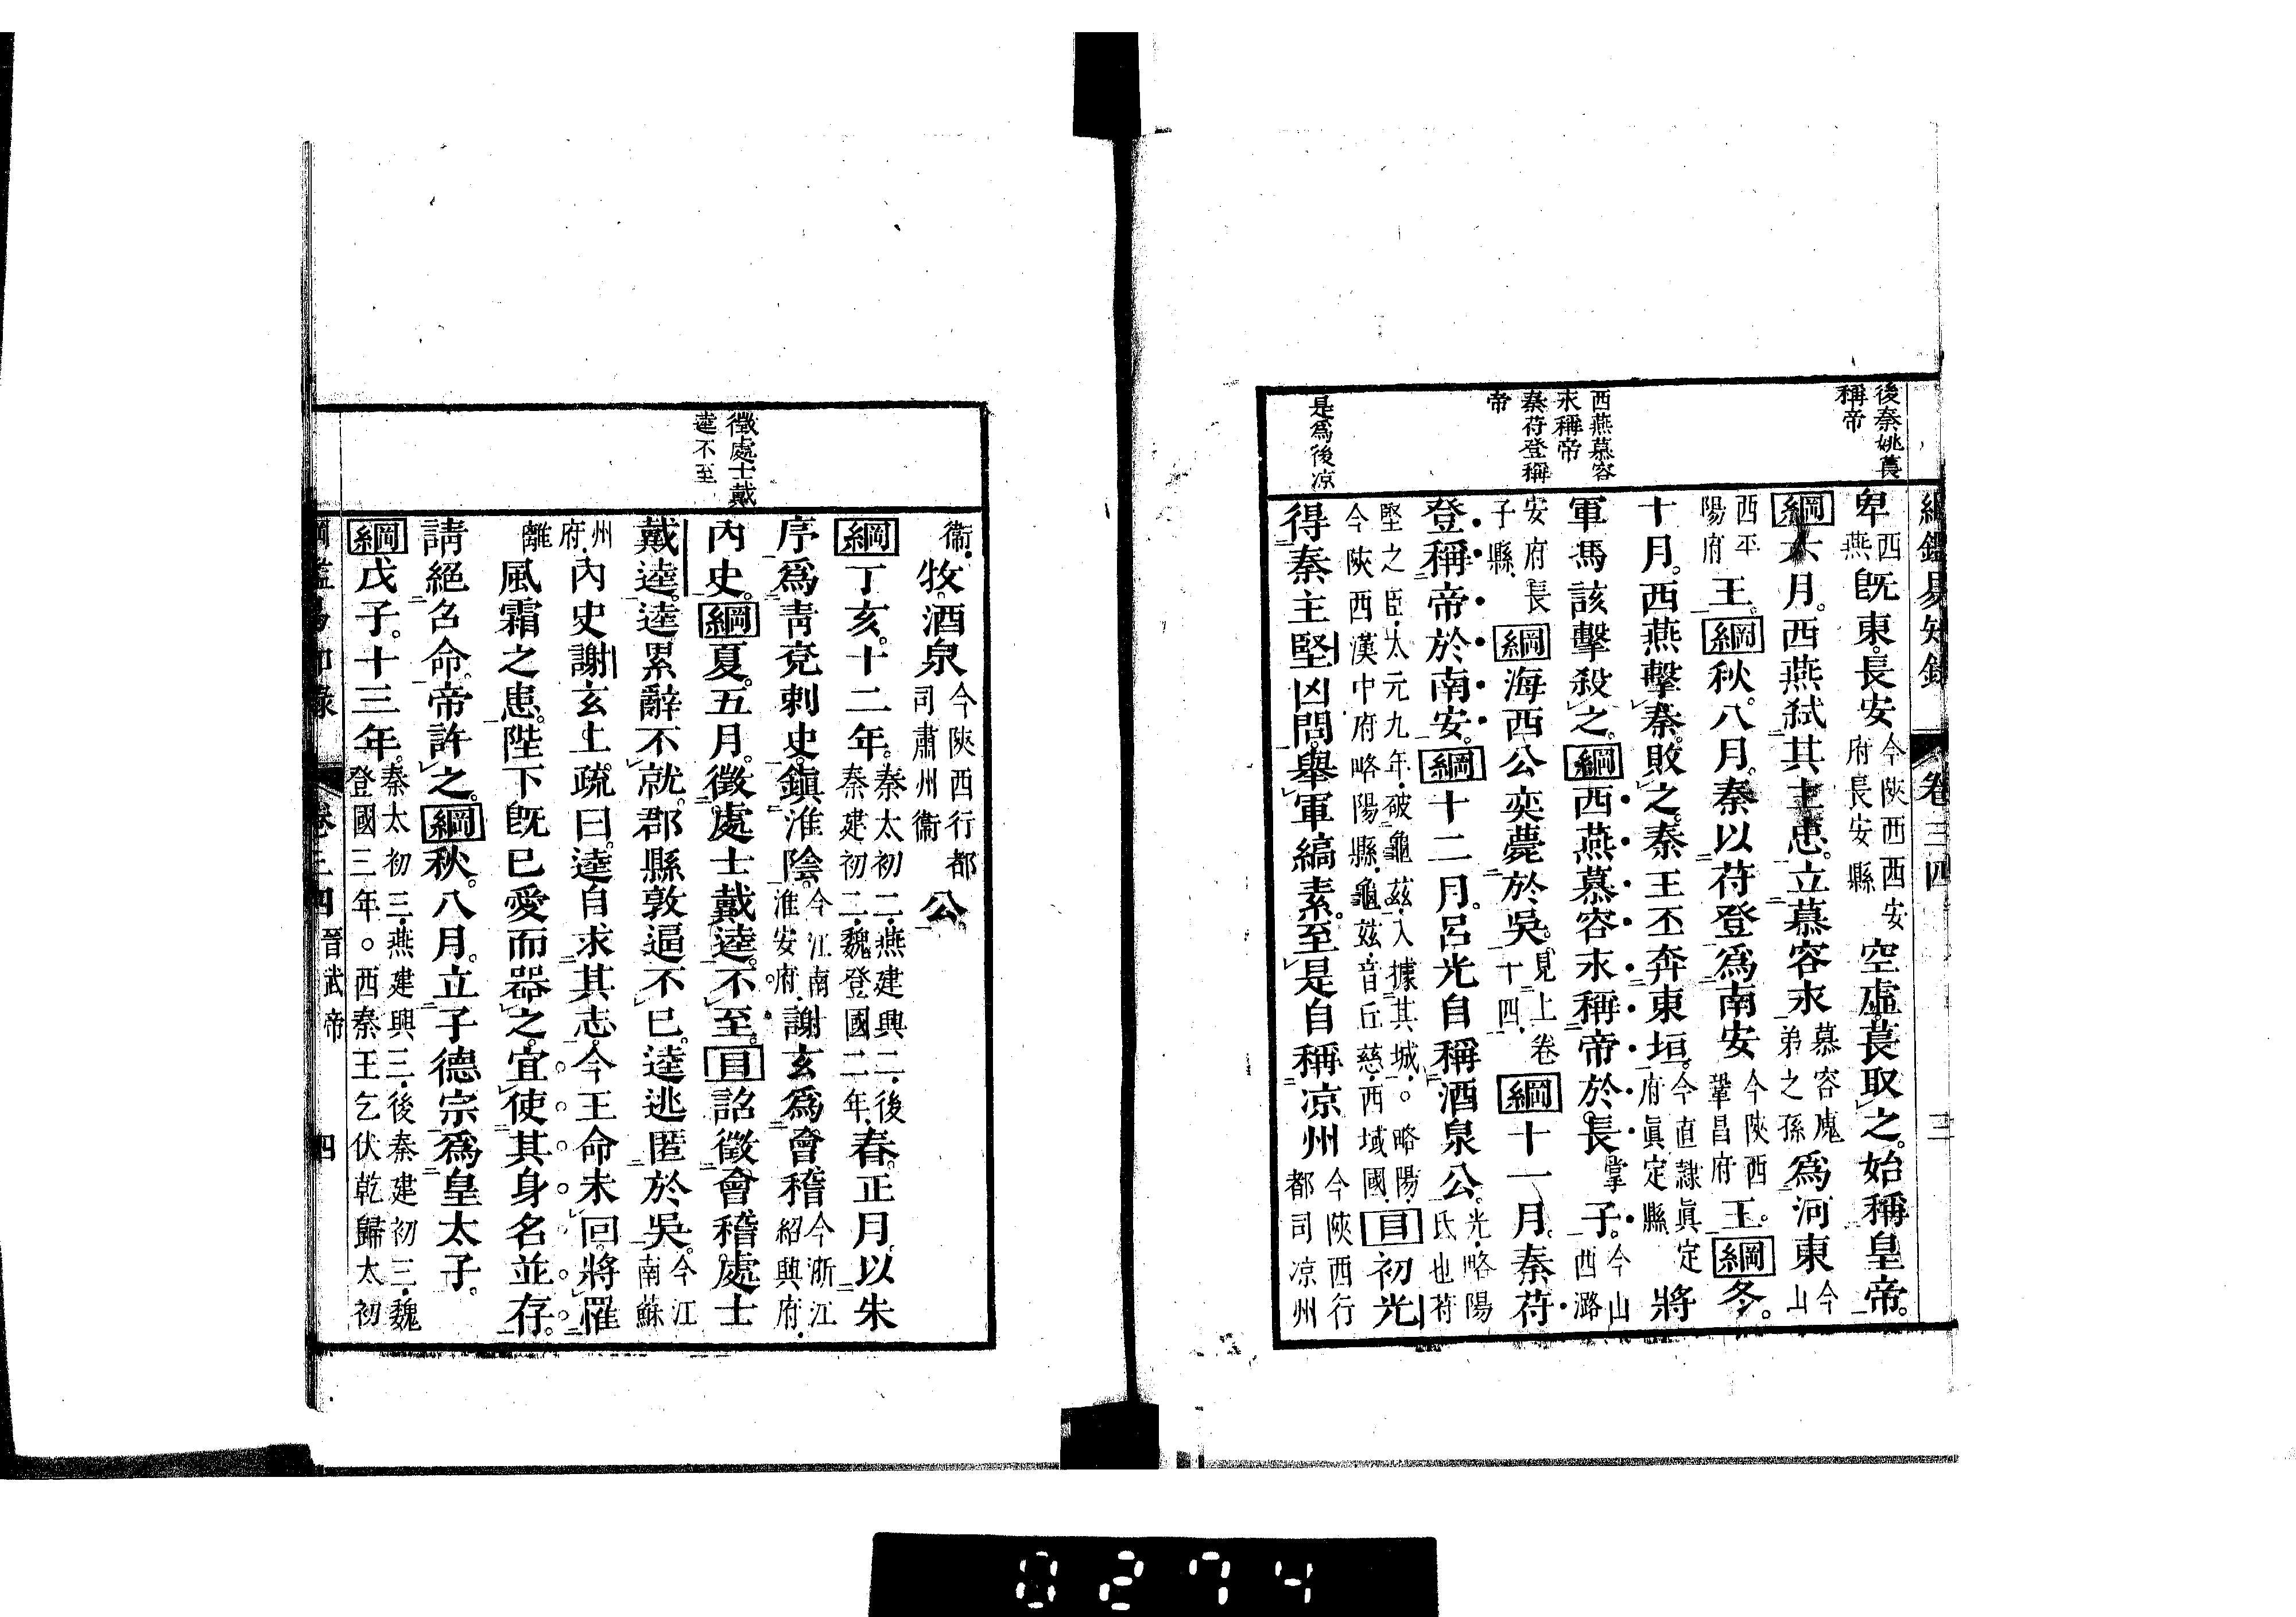 綱鑑易知錄　卷三四　三
後秦姚萇
稱帝
西燕慕容
永稱帝
秦苻登稱
帝
是爲後涼
卑西燕旣東。長安今陜西西安府長安縣空虛。萇取之。始稱皇帝。
綱六月。西燕弑其主忠。立慕容永慕容廆弟之孫爲河東今山
西平陽府王。綱秋。八月。秦以苻登爲南安今陜西鞏昌府王。綱冬。
十月。西燕擊秦。敗之。秦王丕奔東垣。今直隷眞定府眞定縣將
軍馮該擊殺之。綱西燕慕容永稱帝於長掌子。今山西潞
安府長子縣綱海西公奕薨於吳。見上卷十四綱十一月。秦苻
登稱帝於南安。綱十二月。呂光自稱酒泉公。光略陽氐也苻
堅之臣太元九年破龜茲入據其城。略陽今陜西漢中府略陽縣龜茲音丘慈西域國目初光
得秦主堅凶問。舉軍縞素。至是自稱凉州今陜西行都司凉州
徵處士戴
逵不至
衞牧。酒泉今陜西行都司肅州衞公。
綱丁亥。十二年。秦太初二燕建興二後秦建初二魏登國二年春。正月。以朱
序爲青兗刺史。鎭淮陰。今江南淮安府謝玄爲會稽今浙江紹興府
內史。綱夏。五月。徵處士戴逵。不至。目詔徵會稽處士
戴逵。逵累辭不就。郡縣敦逼不已。逵逃匿於吳。今江南蘇
州府內史謝玄上疏曰。逵自求其志。今王命未回。將罹
離風霜之患。陛下旣已愛而器之。宜使其身名並存。
請絕召命。帝許之。綱秋。八月。立子德宗爲皇太子。
綱戊子。十三年。秦太初三燕建興三後秦建初三魏登國三年。西秦王乞伏乾歸太初
綱鑑易知錄　卷三四　晉武帝　四
0274